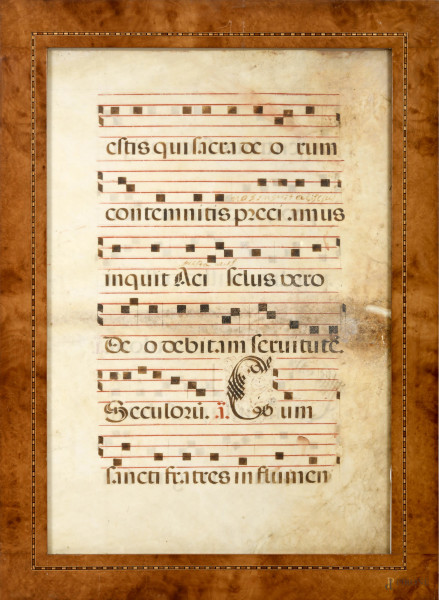 estis qui sacra de o rum
contemnitis preci .amus
inquit Aci sclus vero
De o debitam servitute.
Seculorū. ā. Co um
sancti fratres in flumen